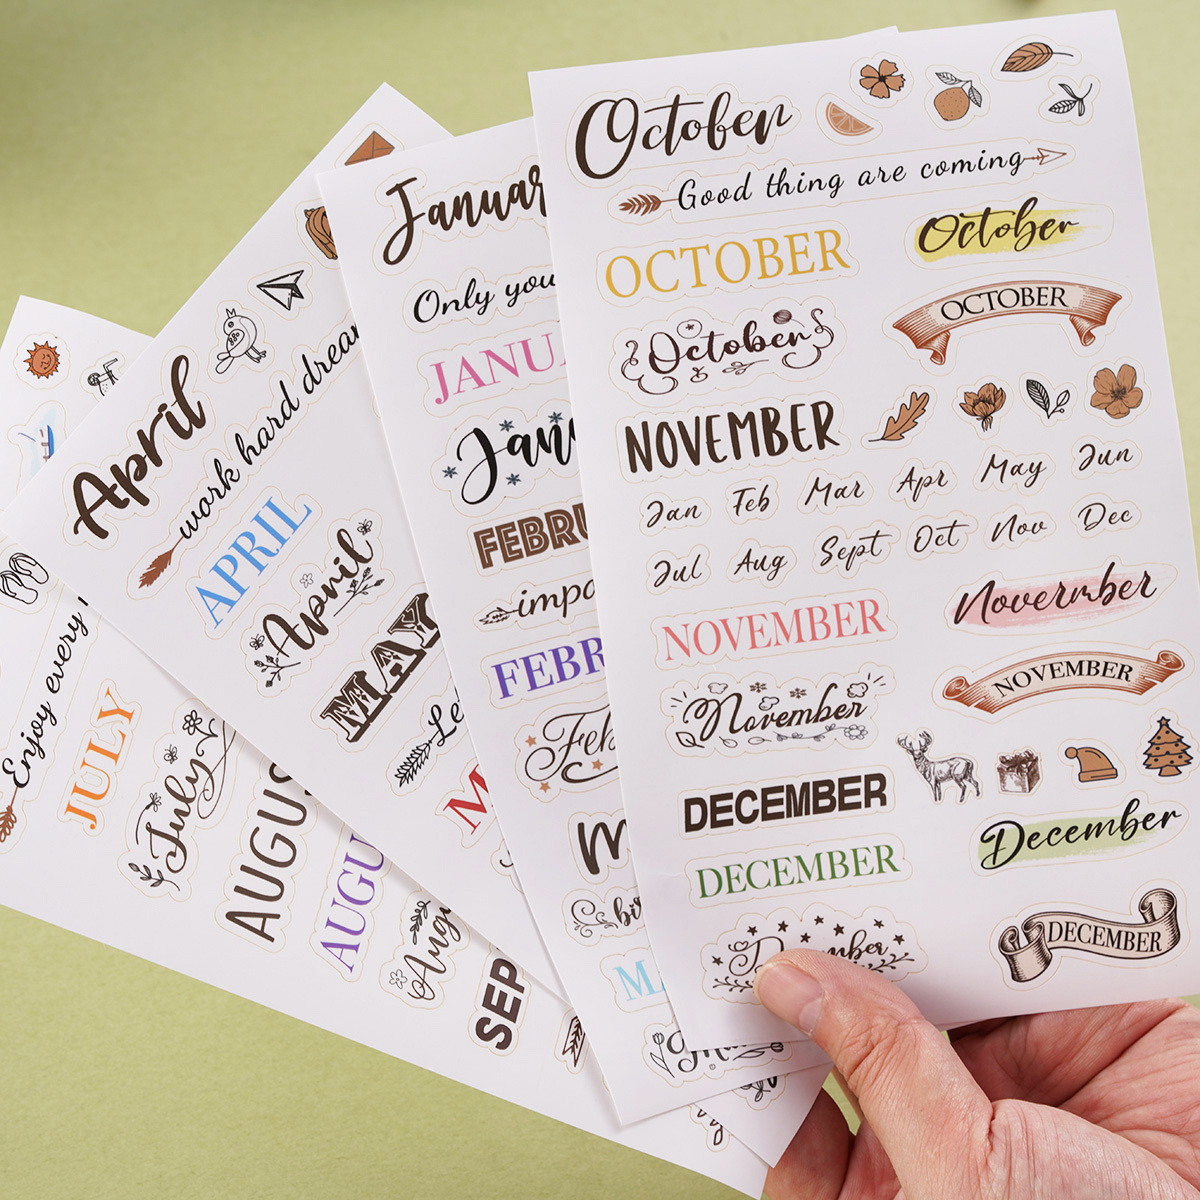 October
Good thing are coming
OCTOBER
October
October
OCTOBER
NOVEMBER
Jan Feb Mar Apr May Jun
Jul Aug Sept Oct Nov Dec
NOVEMBER
Novermber
November
NOVEMBER
DECEMBER
DECEMBER
December
DECEMBER
Januar
Only you
JANUA
Janu
FEBRU
impo
FEBR
Feb
M
bir
MA
April
work hard drea
APRIL
April
MAY
Le
M
Enjoy every
JULY
July
AUGUS
AUGU
Augu
SEP